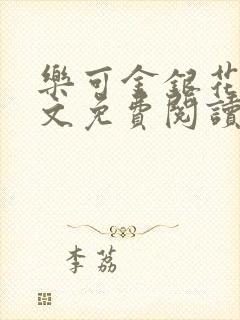 樂可金銀花
文免費閱讀
李荔